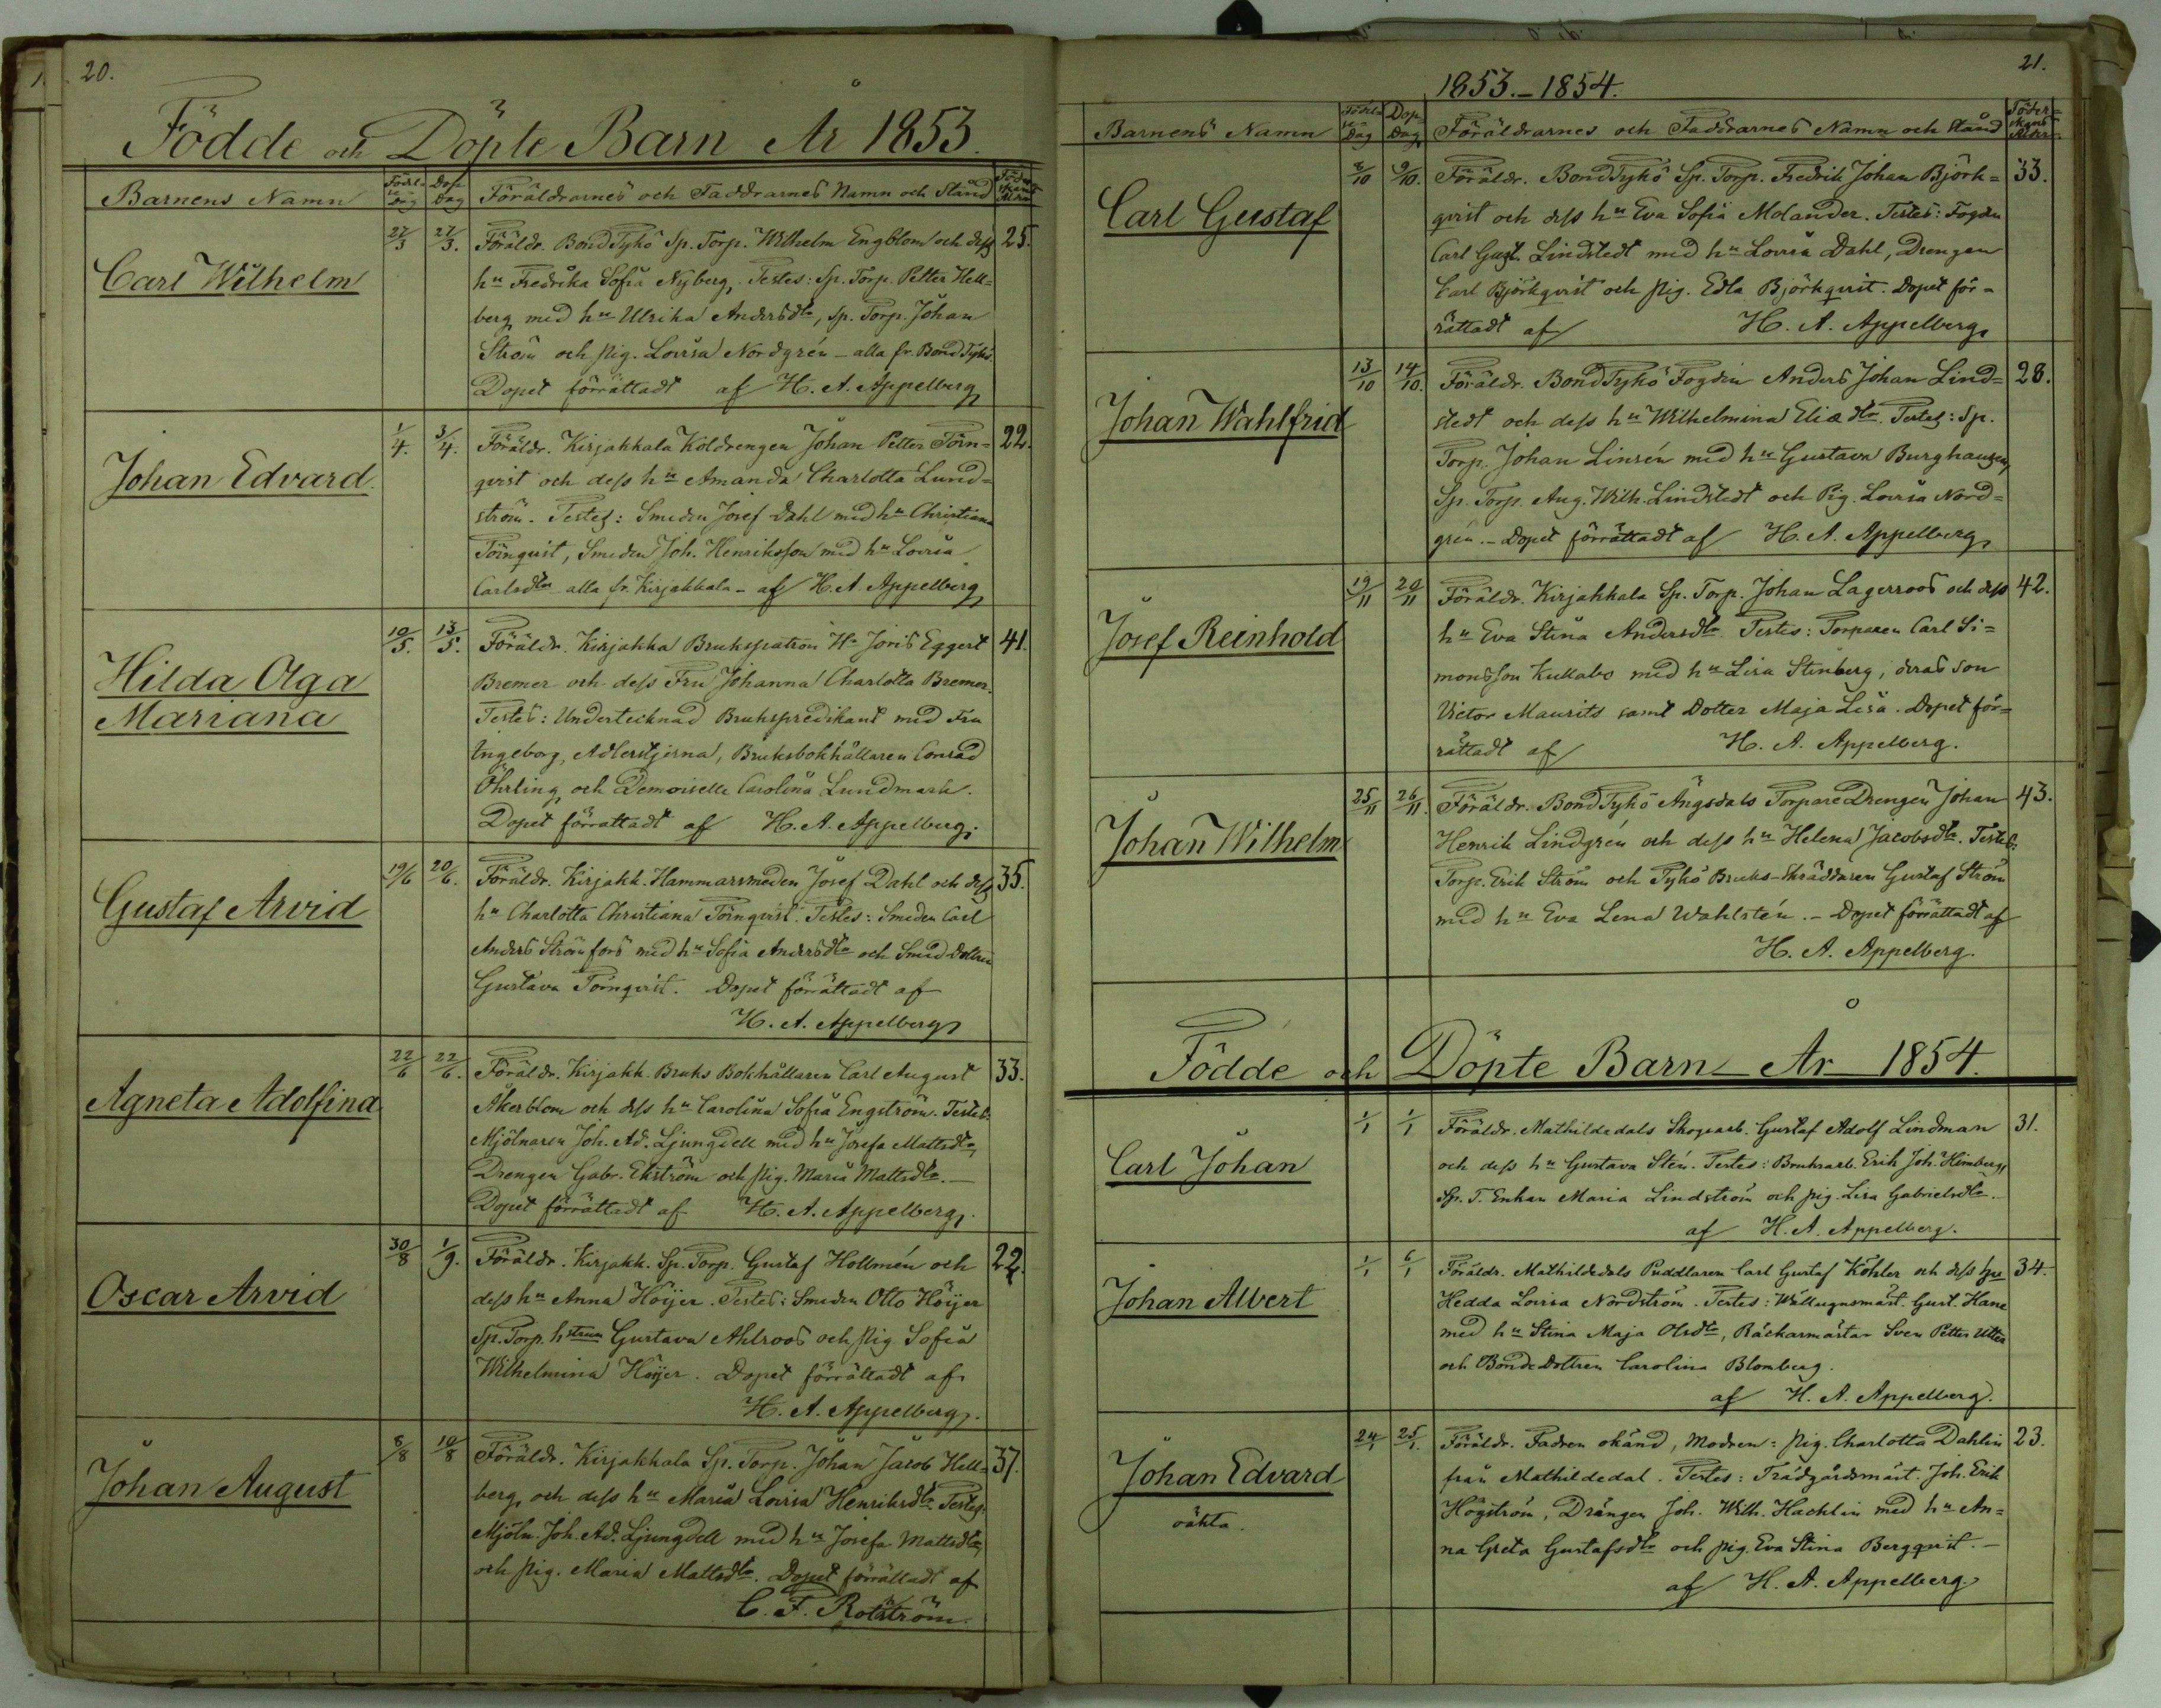 20.
Födde och Döpte Barn År 1853.
Barnens Namn Födelse Dag Dop Dag Föräldrarnes och Faddrarnes Namn och Stånd
Carl Wilhelm
27/3 27/3. Föräldr. BondTykö Sp. Torp. Wilhelm Engblom och dess 25.
hu Fredrika Sofia Nyberg, Testes: Sp. Torp. Petter Hell=
berg med hu Ulrika Andersdtr, Sp. Torp. Johan
Ström och pig. Lovisa Nordgrén – alla fr. BondTykö.
Dopet förrättadt af H. A. Appelberg
Johan Edvard
1/4. 3/4. Föräldr. Kirjakkala Koldrengen Johan Petter Törn= 22.
qvist och dess hu Amanda Charlotta Lund=
ström. Testes: Smeden Josef Dahl med hu Christiana
Törnqvist, Smeden Joh. Henriksson med hu Lovisa
Carlsdtr alla fr. Kirjakkala – af H. A. Appelberg
Hilda Olga
Mariana
10/5. 13/5. Föräldr. Kirjakka Brukspatron Hr Joris Eggert 41.
Bremer och dess Fru Johanna Charlotta Bremer.
Testes: Undertecknad Brukspredikant med Fru
Ingeborg, Adlerstjerna, Bruksbokhållaren Conrad
Öhrling, och Demoiselle Carolina Lundmark.
Dopet förrättadt af H. A. Appelberg.
Gustaf Arvid
19/6 20/6. Föräldr. Kirjakk. Hammarsmeden Josef Dahl och dess 35.
hu Charlotta Christiana Törnqvist. Testes: Smeden Carl
Anders Strömfors med hu Sofia Andersdtr och SmedDottren
Gustava Törnqvist. Dopet förrättadt af
H. A. Appelberg
Agneta Adolfina
22/6 22/6. Föräldr. Kirjakk. Bruks Bokhållaren Carl August 33.
Åkerblom och dess hu Carolina Sofia Engström. Testes:
Mjölnaren Joh. Ad. Ljungdell med hu Josefa Mattsdtr,
Drengen Gabr. Ekström och pig. Maria Mattsdtr. –
Dopet förrättadt af H. A. Appelberg.
Oscar Arvid
30/8 1/9. Föräldr. Kirjakk. Sp. Torp. Gustaf Hollmén och 22.
dess hu Anna Höijer. Testes: Smeden Otto Höijer
Sp. Torp. hstrun Gustava Ahlroos och pig Sofia
Wilhelmina Höijer. Dopet förrättadt af
H. A. Appelberg.
Johan August
8/8 10/8 Föräldr. Kirjakkala Sp. Torp. Johan Jacob Hell= 37.
berg, och dess hu Maria Lovisa Henriksdtr. Testes:
Mjöln. Joh. Ad. Ljungdell med hu Josefa Mattsdtr,
och pig. Maria Mattsdtr. Dopet förrättadt af
C. F. Rotström.
21.
1853.–1854.
Barnens Namn Födelse Dag Dop Dag Föräldrarnes och Faddrarnes Namn och Stånd
Carl Gustaf
8/10 9/10. Föräldr. BondTykö Sp. Torp. Fredrik Johan Björk= 33.
qvist och dess hu Eva Sofia Molander. Testes: Fogden
Carl Gust. Lindstedt med hu Lovisa Dahl, Drengen
Carl Björkqvist och pig. Edla Björkqvist. Dopet för=
rättadt af H. A. Appelberg.
Johan Wahlfrid
13/10 14/10. Föräldr. BondTykö Fogden Anders Johan Lind= 28.
stedt och dess hu Wilhelmina Eliædtr. Testes: Sp.
Torp. Johan Linrén med hu Gustava Burghausen,
Sp. Torp. Aug. Wilh. Lindstedt och Pig. Lovisa Nord=
grén. – Dopet förrättadt af H. A. Appelberg,
Josef Reinhold
19/11 20/11 Föräldr. Kirjakkala Sp. Torp. Johan Lagerroos och dess 42.
hu Eva Stina Andersdtr. Testes: Torparen Carl Si=
monsson Kullabo med hu Lisa Stenberg, deras son
Victor Maurits samt Dotter Maja Lisa. Dopet för=
rättadt af H. A. Appelberg.
Johan Wilhelm
25/11 26/11. Föräldr. BondTykö Ängsdals TorpareDrengen Johan 43.
Henrik Lindgrén och dess hu Helena Jacobsdtr. Testes:
Torp. Erik Ström och Tykö Bruks-Skräddaren Gustaf Ström
med hu Eva Lena Wahlstén. – Dopet förrättadt af
H. A. Appelberg.
Födde och Döpte Barn År 1854.
Carl Johan
1/1 1/1 Föräldr. Mathildedals Skogsarb. Gustaf Adolf Lindman 31.
och dess hu Gustava Stén. Testes: Bruksarb. Erik Joh. Himberg,
Sp. T. Enkan Maria Lindström och pig. Lisa Gabrielsdtr. –
af H. A. Appelberg.
Johan Albert
1/1 6/1 Föräldr. Mathildedals Puddlaren Carl Gustaf Köhler och dess hu 34.
Hedda Lovisa Nordström. Testes: Wällugnsmäst. Gust. Hane
med hu Stina Maja Olsdtr, Räckarmästar Sven Petter Utter
och BondeDottren Carolina Blomberg.
af H. A. Appelberg.
Johan Edvard
oäkta.
24/1 25/1. Föräldr. Fadren okänd, Modren: pig. Charlotta Dahlin 23.
från Mathildedal. Testes: Trädgårdsmäst. Joh. Erik
Högström, Drängen Joh. Wilh. Hachlin med hu An=
na Greta Gustafsdtr och pig. Eva Stina Bergqvist. –
af H. A. Appelberg.